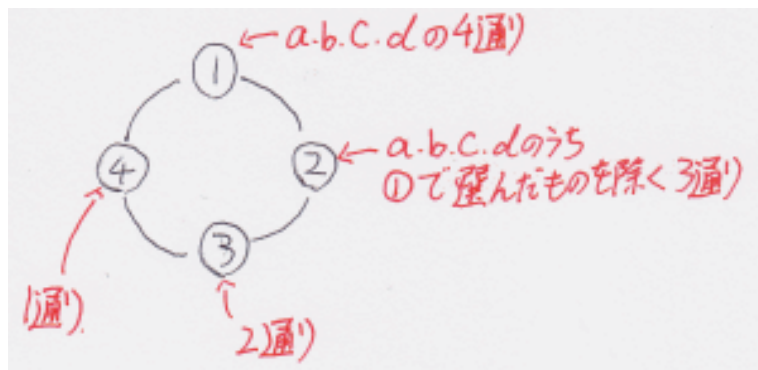 ①
←a.b.c.dの4通り
④
②
←a.b.c.dのうち
①で選んだものを除く3通り
③
1通り.
2通り